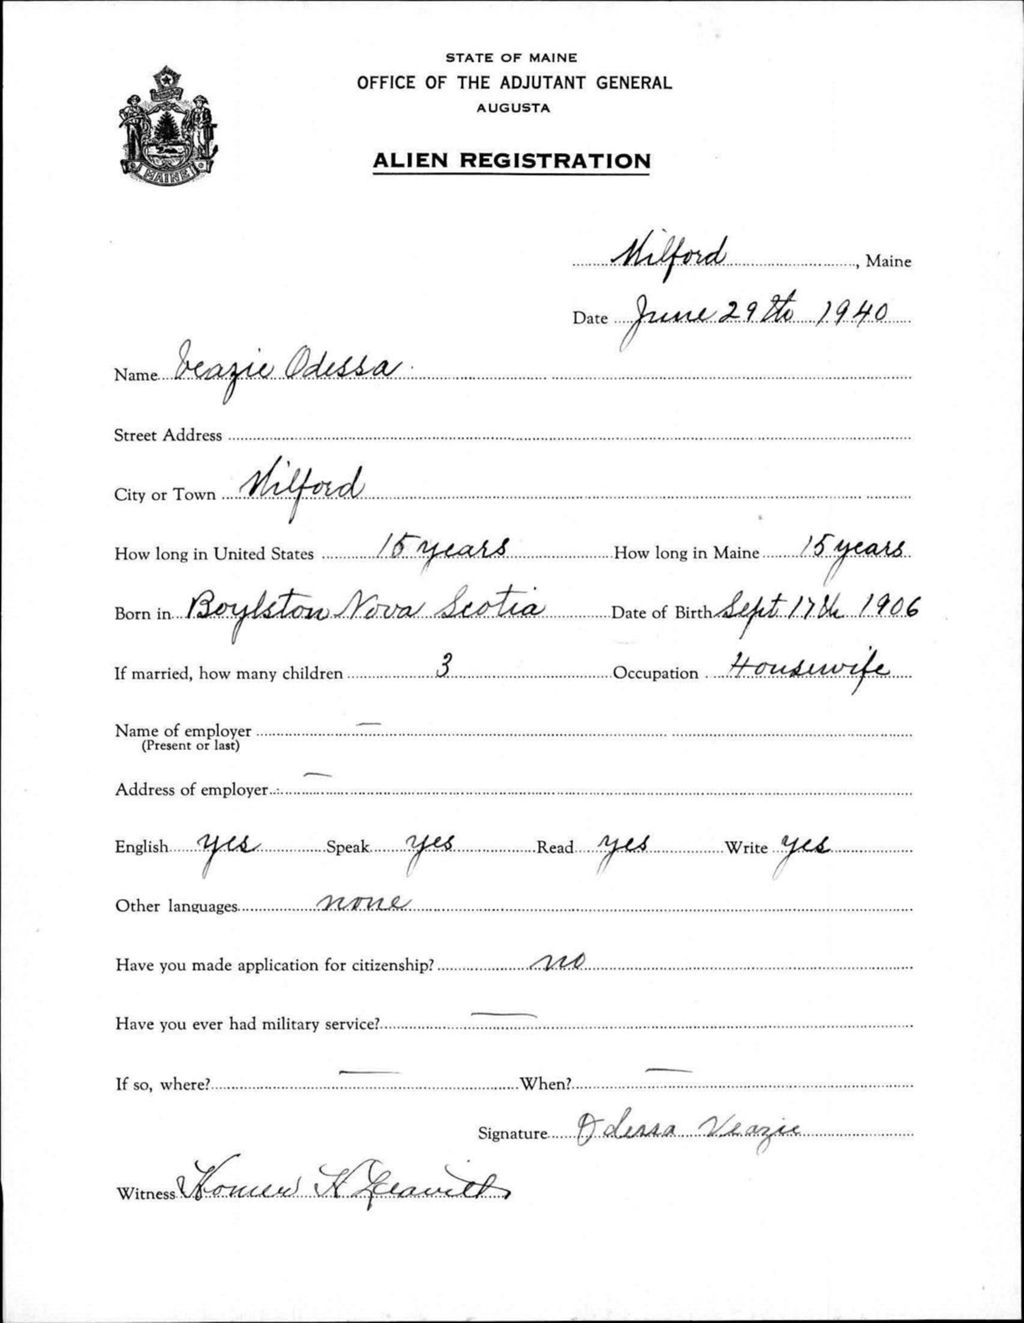 STATE OF MAINE
OFFICE OF THE ADJUTANT GENERAL
AUGUSTA
ALIEN REGISTRATION
MAINE
Milford, Maine
Date June 29th 1940
Name Veazie Odessa
Street Address
City or Town Milford
How long in United States 15 years How long in Maine 15 years
Born in Boylston Nova Scotia Date of Birth Sept 17th 1906
If married, how many children 3 Occupation Housewife
Name of employer —
(Present or last)
Address of employer —
English yes Speak yes Read yes Write yes
Other languages none
Have you made application for citizenship? no
Have you ever had military service? —
If so, where? — When? —
Signature Odessa Veazie
Witness Homer K Leavitt